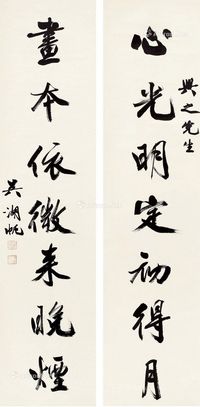 興之先生
心光明定初得月
畫本依微来晚煙
吳湖帆